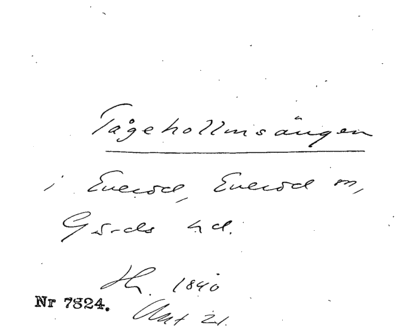 Tågehollmsängen
i Everöd, Everöd sn,
Gärds hd.
Hr. 1840
Akt 21.
Nr 7824.